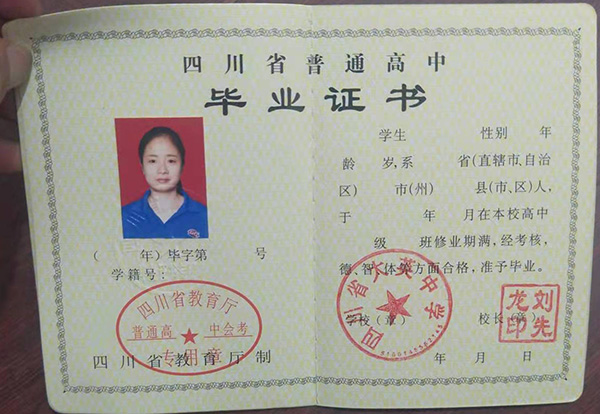 四川省普通高中
毕业证书
（ 年）毕字第 号
学籍号：
四川省教育厅
普通高 中会考
专用章
四川省教育厅制
学生 性别 年
龄 岁,系 省(直辖市、自治
区) 市(州) 县(市、区)人,
于 年 月在本校高中
级 班修业期满,经考核,
德、智、体等方面合格,准予毕业。
学校（章） 校长（章）
四川省大英中学
刘先
龙印
年 月 日